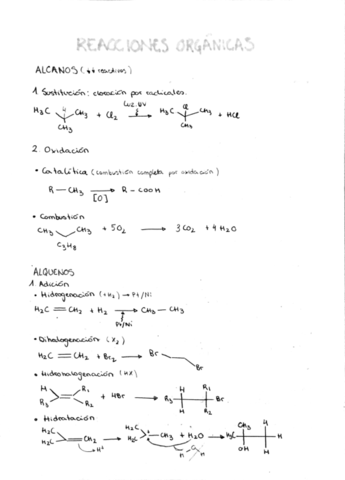 REACCIONES ORGÁNICAS
ALCANOS
1. Sustitución: cloración por radicales.
H₃C CH₃ + Cl₂ Luz UV H₃C Cl CH₃ + HCl
CH₃ CH₃
2. Oxidación
• Catalítica (combustión completa por oxidación)
R - CH₃ → R - COOH
[O]
• Combustión
CH₃ CH₃ + 5O₂ → 3CO₂ + 4H₂O
C₃H₈
ALQUENOS
1. Adición
• Hidrogenación (+H₂) → Pt/Ni
H₂C = CH₂ + H₂ → CH₃ - CH₃
Pt/Ni
• Dihalogenación (X₂)
H₂C = CH₂ + Br₂ → Br Br
• Hidrohalogenación (HX)
H R₁ H R₁
R₃ R₂ + HBr → R₃ Br
H R₂
• Hidratación
H₃C CH₂ → H₃C CH₃ + H₂O → H₃C H
H₃C H⁺ H₃C CH₃ OH H